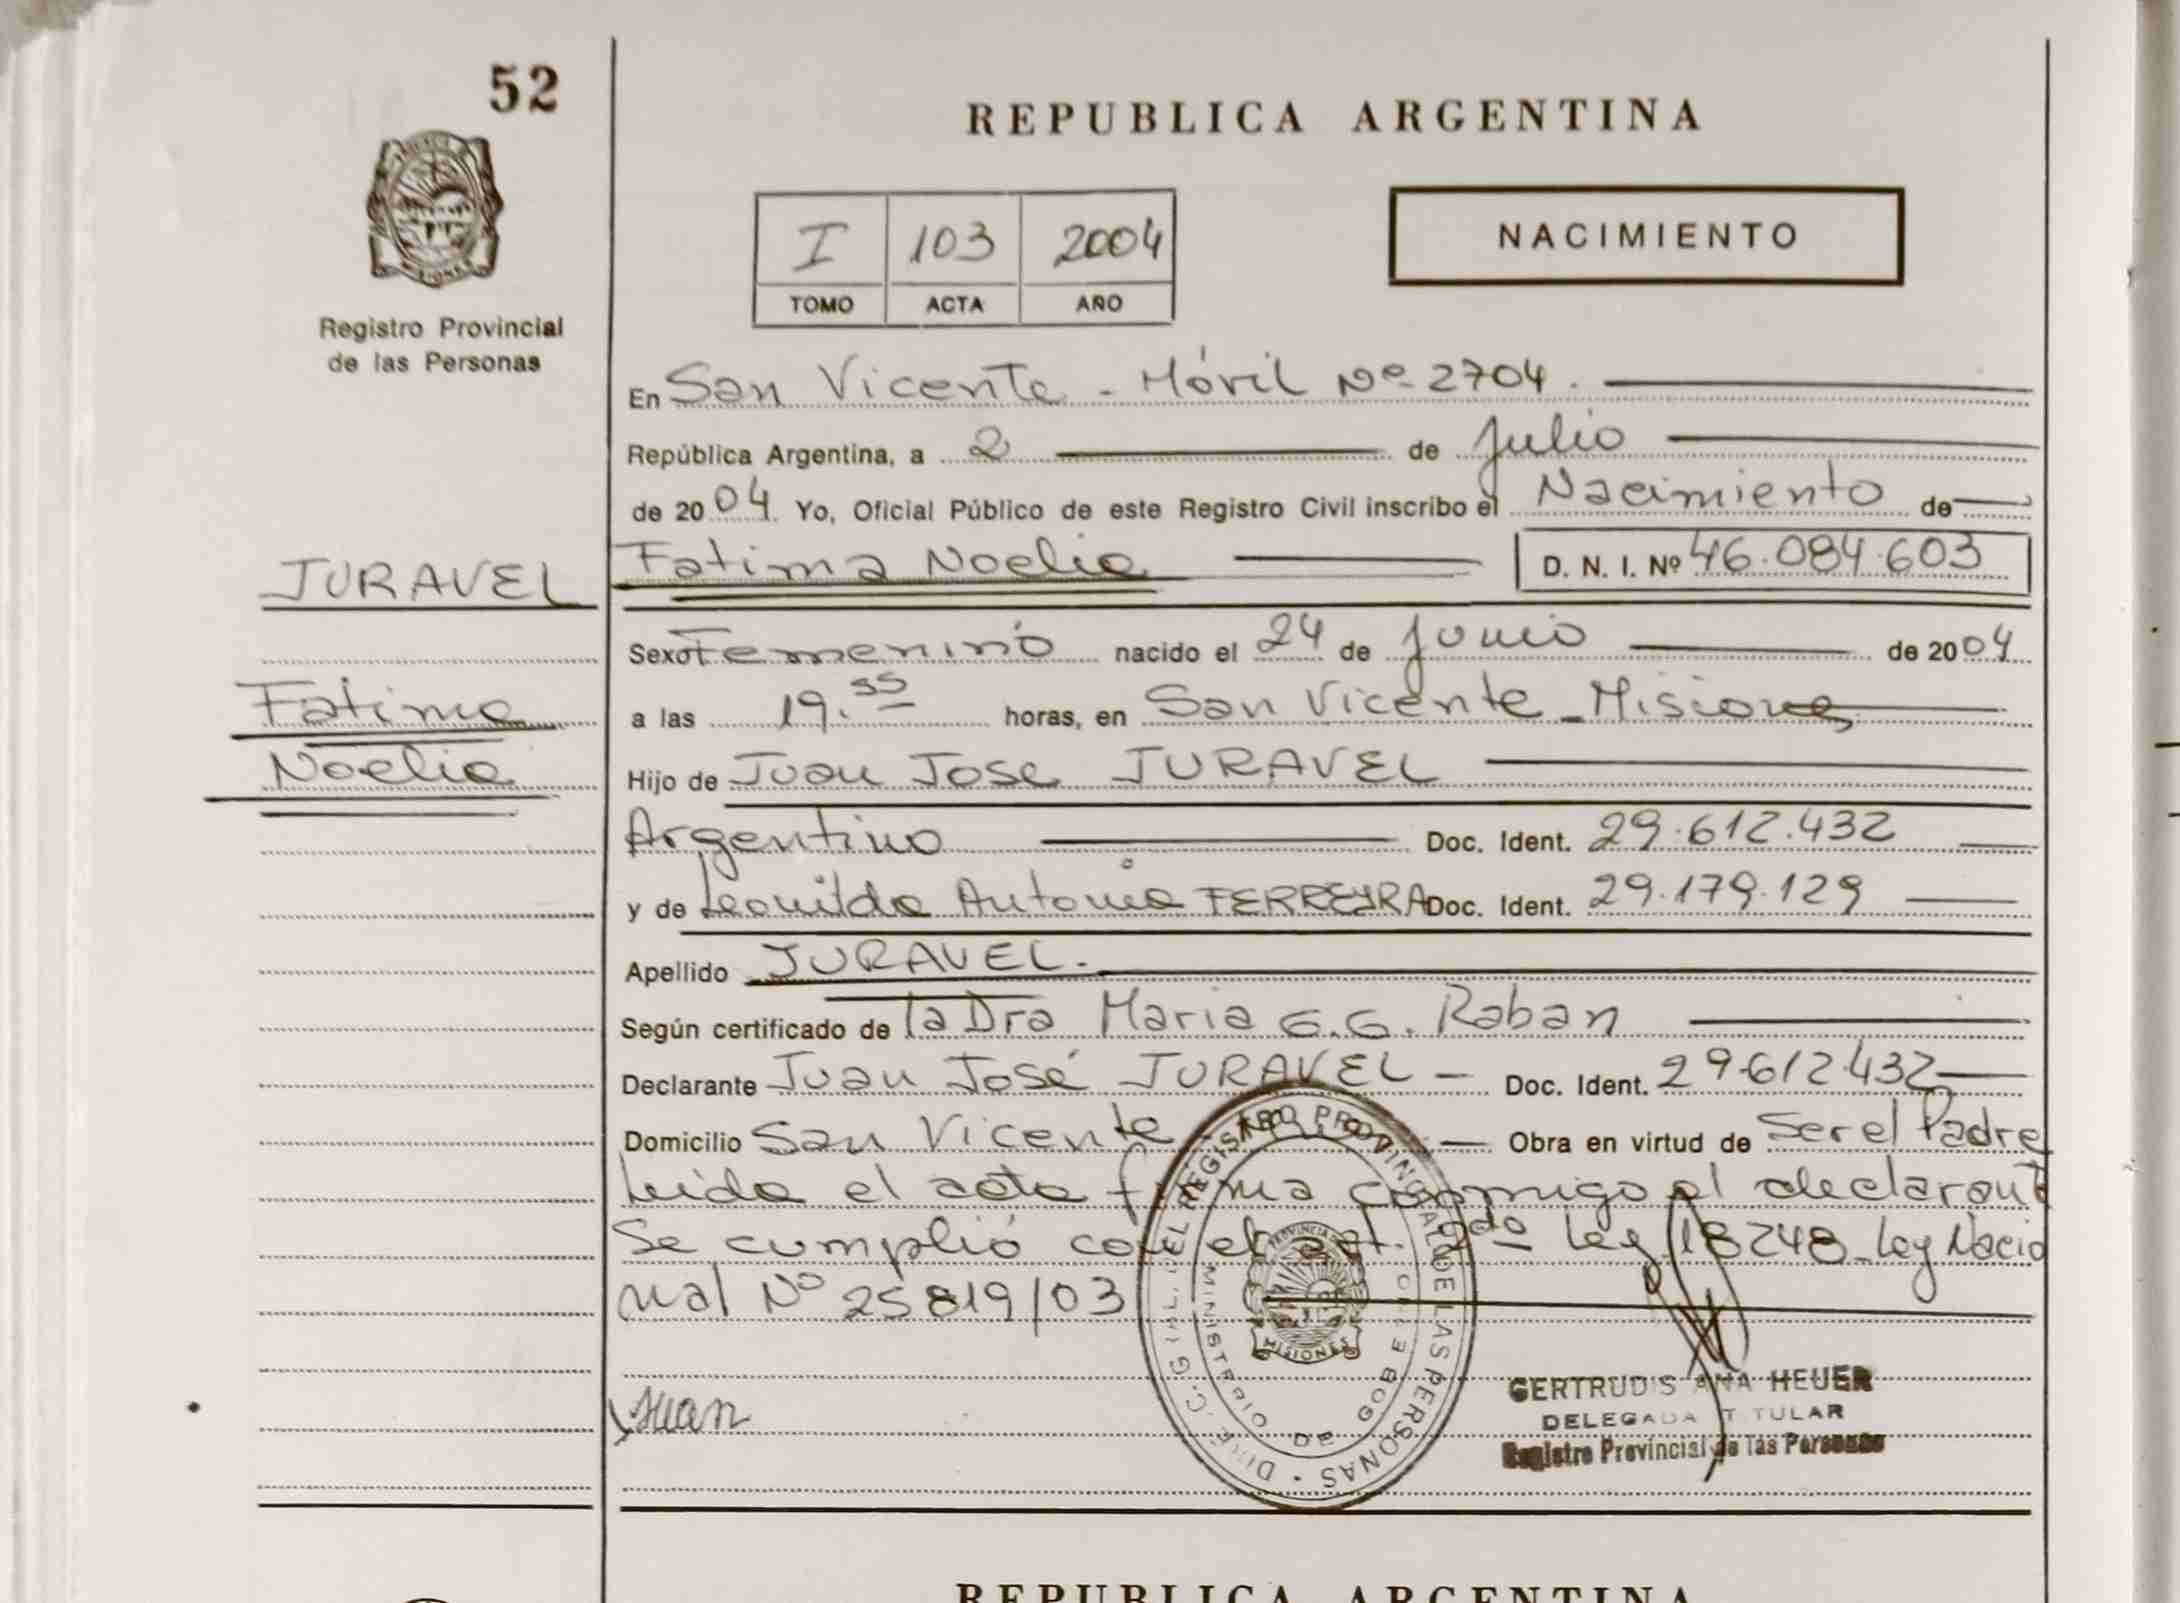 52
REPUBLICA ARGENTINA
MISIONES
Registro Provincial
de las Personas
I 103 2004
TOMO ACTA AÑO
NACIMIENTO
En San Vicente - Móvil Nº 2704.
República Argentina, a 2 de Julio
de 2004. Yo, Oficial Público de este Registro Civil inscribo el Nacimiento de
JURAVEL
Fatima Noelia D. N. I. Nº 46.084.603
Sexo Femenino nacido el 24 de Junio de 2004
Fatima
a las 19.35 horas, en San Vicente - Misiones
Noelia
Hijo de Juan Jose JURAVEL
Argentino Doc. Ident. 29.612.432
y de Leonilda Antonia FERREYRA Doc. Ident. 29.179.129
Apellido JURAVEL.
Según certificado de la Dra Maria G.G. Raban
Declarante Juan José JURAVEL - Doc. Ident. 29.612.432
Domicilio San Vicente Obra en virtud de Ser el Padre
Leida el acta firma conmigo el declarant
Se cumplió con el art. 2do Ley 18248 - Ley Nacio
nal Nº 25819/03
Juan
REGISTRO PROVINCIAL DE LAS PERSONAS
MINISTERIO DE GOBIERNO
PROVINCIA
MISIONES
GERTRUDIS ANA HEUER
DELEGADA TITULAR
Registro Provincial de las Personas
REPUBLICA ARGENTINA